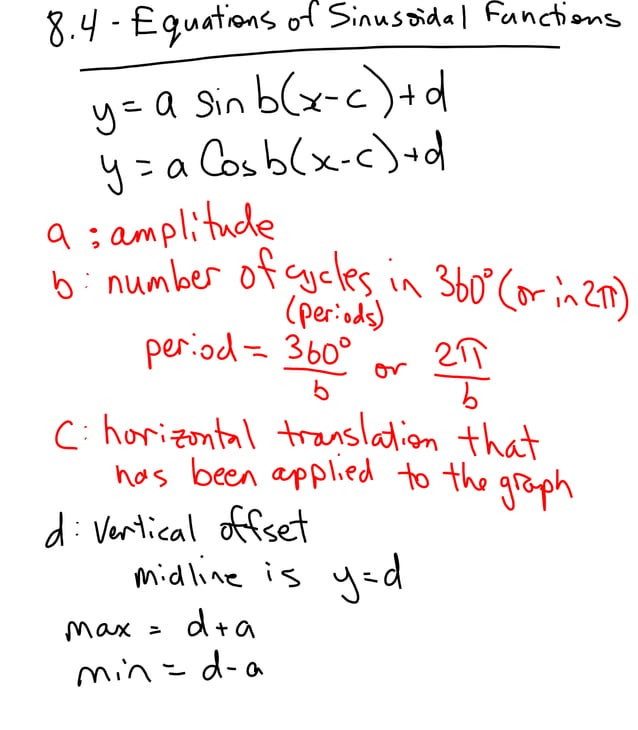 8.4 - Equations of Sinusoidal Functions
y = a sin b(x-c)+d
y = a Cos b(x-c)+d
a : amplitude
b : number of cycles in 360° (or in 2π)
(periods)
period = 360°/b or 2π/b
C : horizontal translation that
has been applied to the graph
d : Vertical offset
midline is y=d
max = d+a
min = d-a